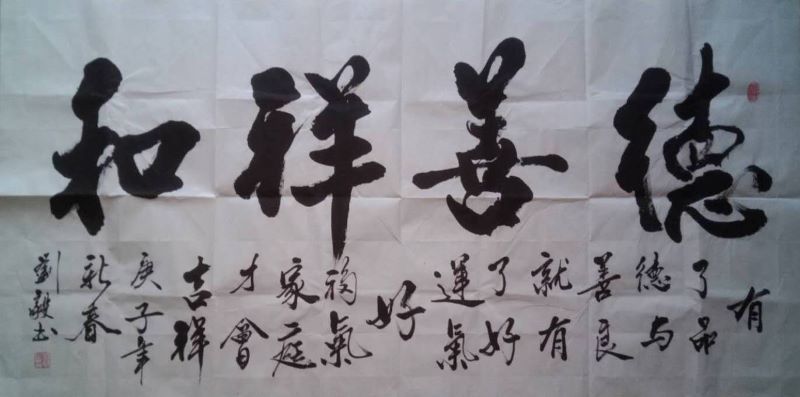 德善祥和
有
了品
德与
善良
就有
了好
運氣
好
福氣
家庭
才會
吉祥
庚子年
新春
劉书